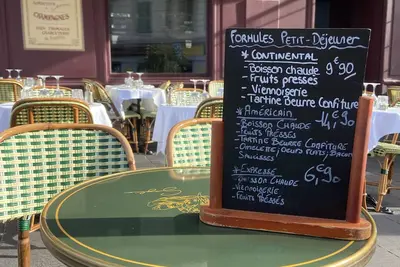 CHAMPAGNES
FORMULES PETIT-DÉJEUNER
* CONTINENTAL
- BOISSON CHAUDE
- FRUITS PRESSES
- VIENNOISERIES
- TARTINE BEURRE CONFITURE
9€90
* AMÉRICAIN
14€90
- BOISSON CHAUDE
- FRUITS PRESSÉS
- TARTINE BEURRE CONFITURE
- OMELETTE / OEUFS FRITS / BACON
SAUCISSES
* EXPRESSE
6€90
- BOISSON CHAUDE
- VIENNOISERIE
- FRUITS PRESSÉ